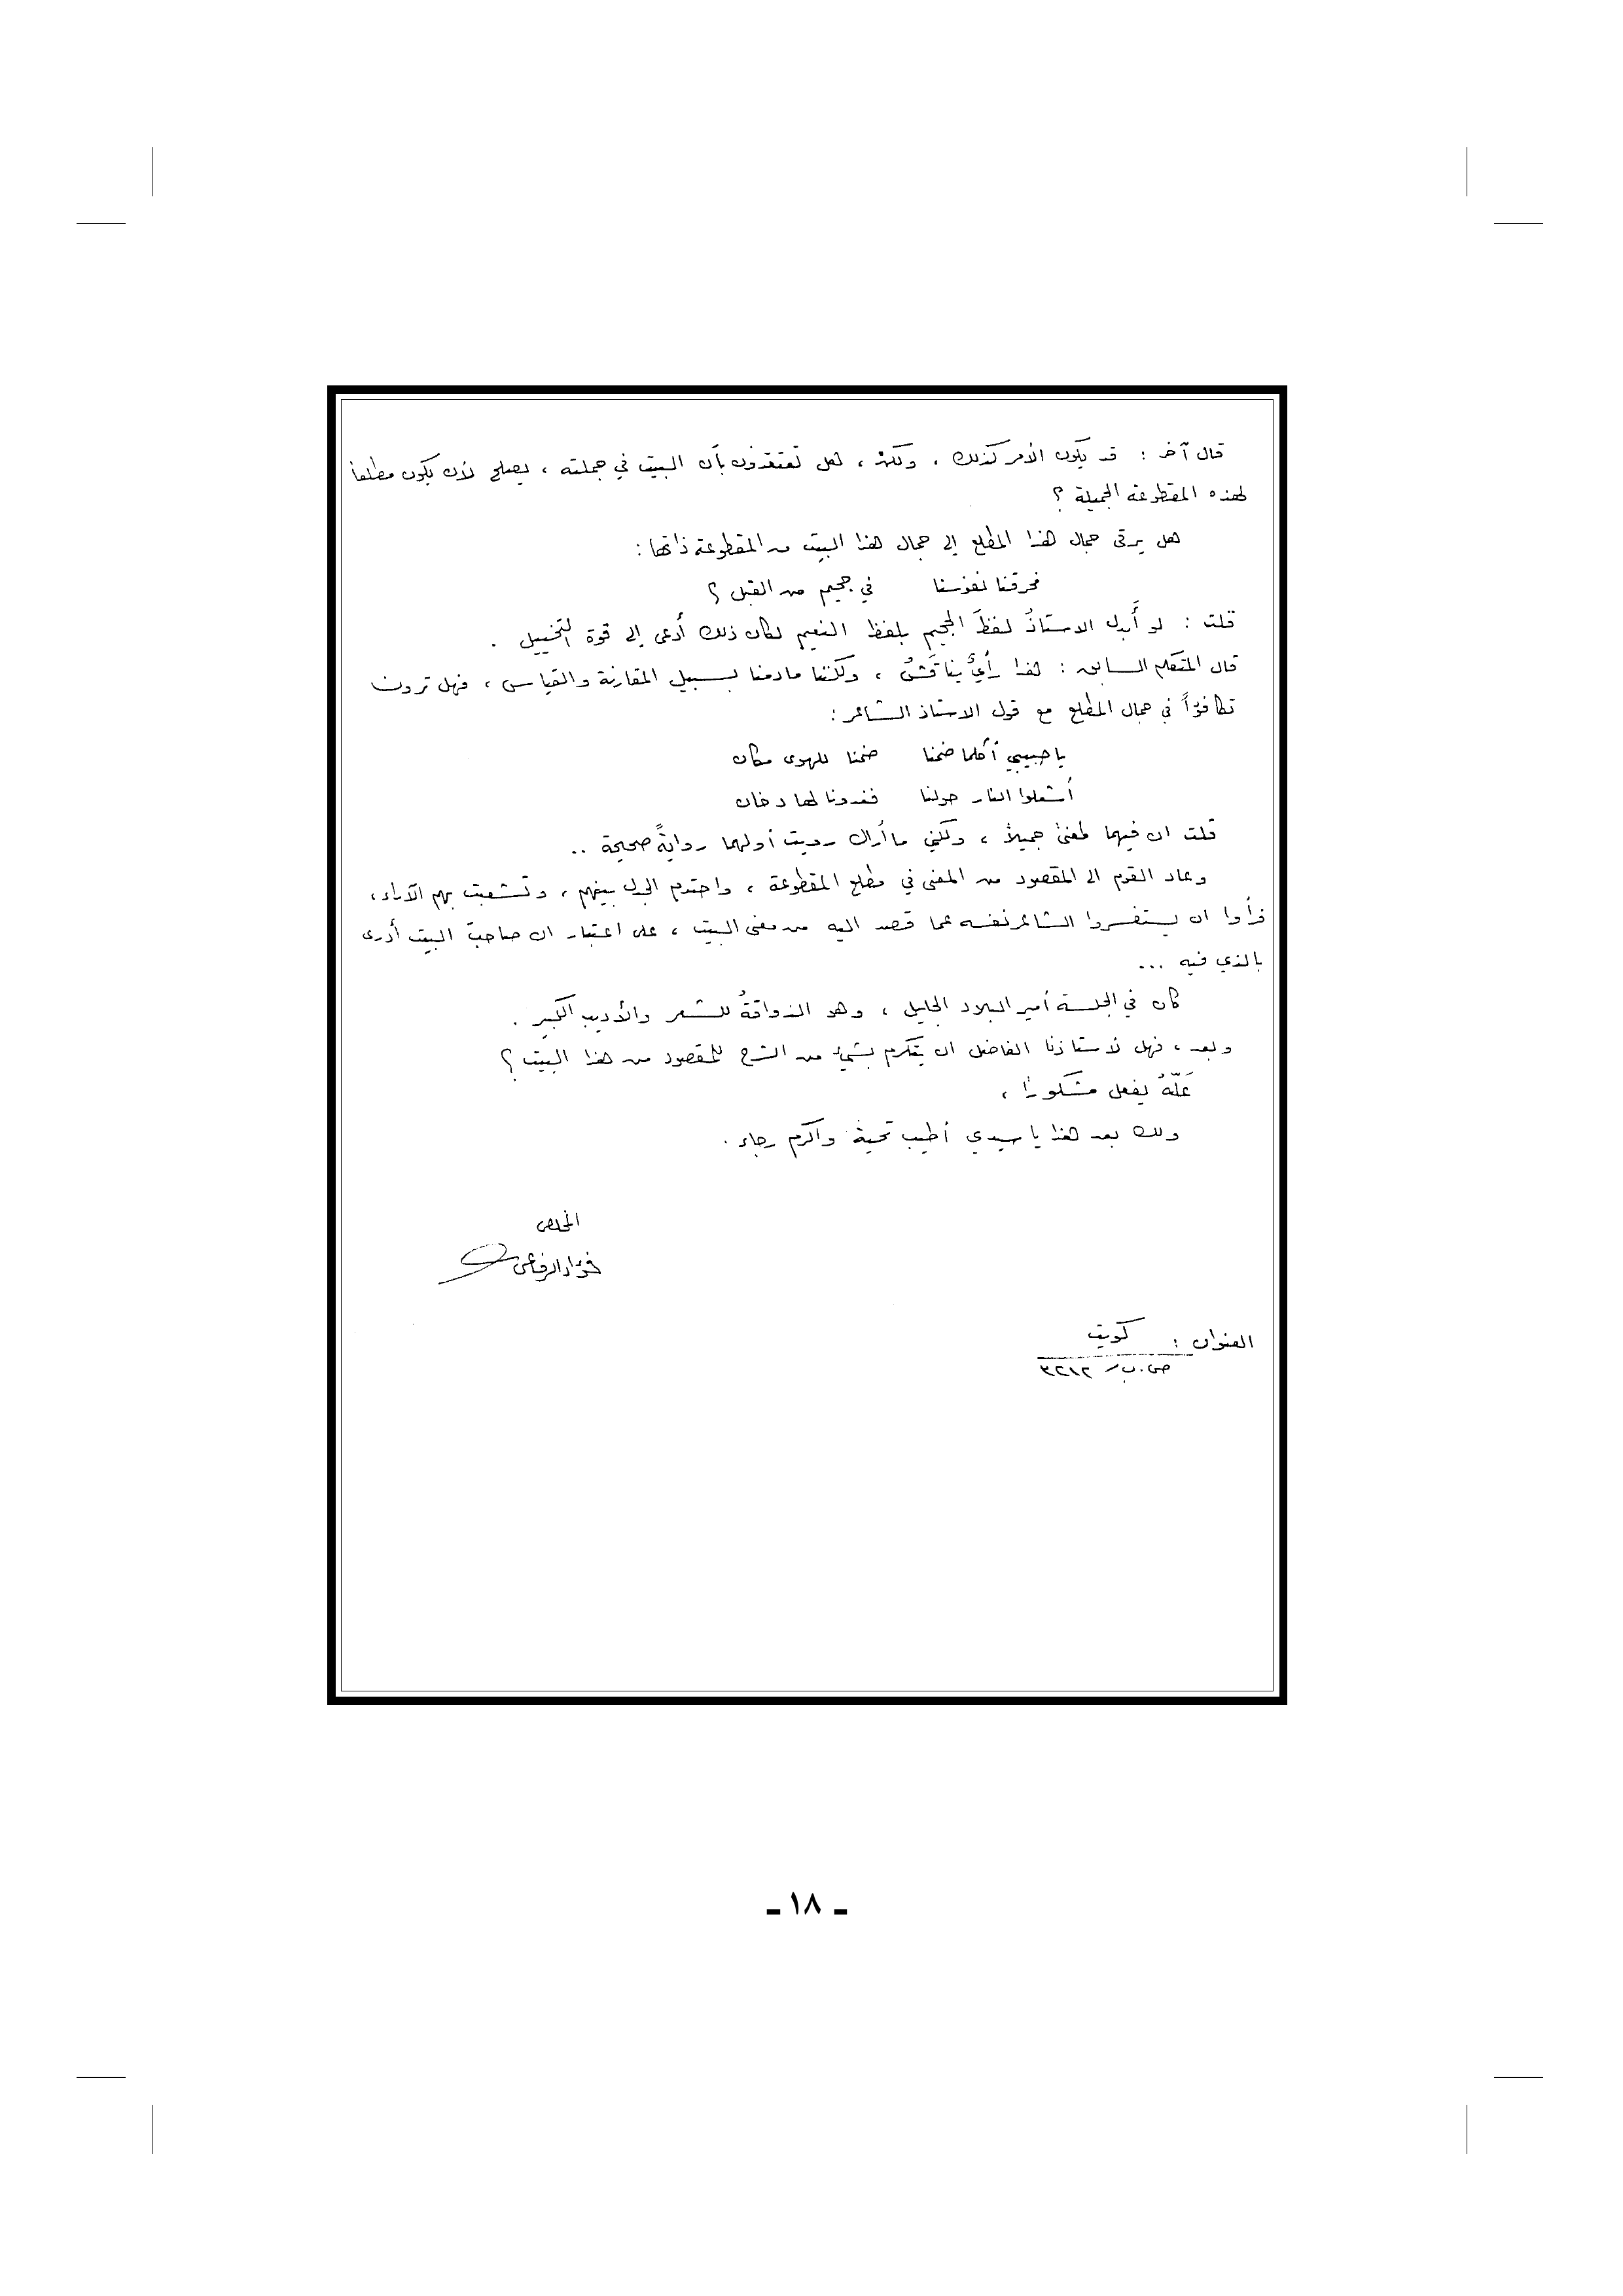 قال آخر : قد يكون الأمر كذلك ، ولكن ، هل تعتقدون بأن البيت في جملته ، يصلح لأن يكون مطلعاً
لهذه المقطوعة الجميلة ؟
هل يرقى جمال هذا المطلع إلى جمال هذا البيت من المقطوعة ذاتها :
فحرقنا نفوسنا في جحيم من القبل ؟
قلت : لو أبدل الاستاذُ لفظَ الجحيم بلفظ النعيم لكان ذلك أدعى إلى قوة التخييل .
قال المتكلم السابق : هذا رأيٌ يناقَشُ ، ولكننا مادمنا بسبيل المقارنة والقياس ، فهل ترون
تكافؤاً في جمال المطلع مع قول الاستاذ الشاعر :
يا حبيبي أكلما ضمنا ضمنا للهوى مكان
أشعلوا النار حولنا فغدونا لها دخان
قلت ان فيهما لمعنىً جميلاً ، ولكني ما أراك رويت أولهما روايةً صحيحة ..
وعاد القوم الى المقصود من المعنى في مطلع المقطوعة ، واحتدم الجدل بينهم ، وتشعبت بهم الآراء ،
فرأوا ان يستفسروا الشاعر نفسه عما قصد اليه من معنى البيت ، على اعتبار ان صاحبَ البيت أدرى
بالذي فيه ...
كان في الجلسة أمير البلاد الجليل ، وهو الذواقةُ للشعر والأديب الكبير .
وبعد ، فهل لأستاذنا الفاضل ان يتكرم بشيءٍ من الشرح للمقصود من هذا البيت ؟
عَلّهُ يفعل مشكوراً ،
ولك بعد هذا يا سيدي أطيب تحية واكرم رجاء .
المخلص
فؤاد الرفاعي
العنوان : كويت
ص.ب/ ٣٢١٢
ـ ١٨ ـ